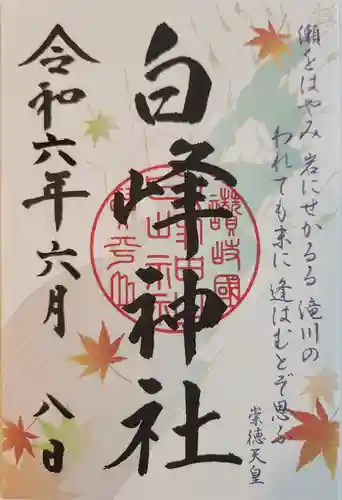 瀬をはやみ 岩にせかるる 滝川の
われても末に 逢はむとぞ思ふ
崇徳天皇
白峰神社
令和六年六月 八日
讃岐國